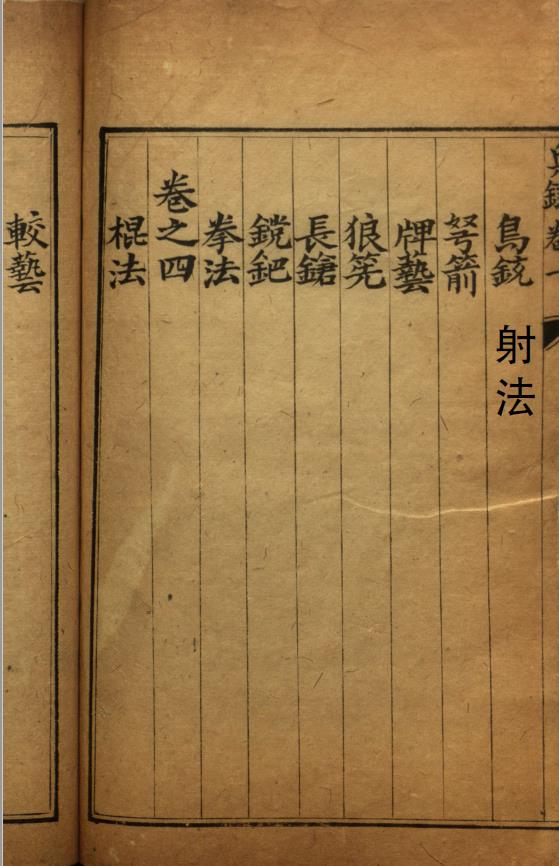 鳥銃
射法
弩箭
牌藝
狼筅
長鎗
鎲鈀
拳法
卷之四
棍法
較藝